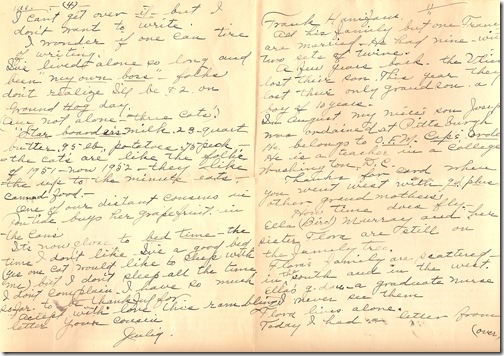 (4)
I can't get over it - but I
don't want to write.
I wonder if one can tire
of writing
I've lived alone so long and
been "my own boss" - folks
don't realize I'll be 82 on
Ground Hog day.
Am not alone - three cats!
Star boarders. Milk 23 - quart
butter 95 - lb. potatoes 95 peck -
the cats are like the folks
of 1951 - now 1952 - they like
the up to the minute eats -
canned food. -
One of our distant cousins in
buys her grapefruit in
the cans
It's now close to bed time - the
time I don't like. I've a good bed
(yes one cat would like to sleep with
me) but I don't sleep all the time
I don't complain. I have so much
to be thankful for.
Accept with love this rambling
letter your cousin
Julia
Frank
All his family but one Frank
are married. He had nine - with
two sets of twins.
A few years back the
lost their son. This year they
lost their only grandson - a
boy of 10 years.
In August my niece's son Joseph
was ordained at Pittsburgh
He belongs to O.F.M. Caps. Order
He is a teacher in a College
Washington, D.C.
Thanks for card when
you went west with
other grand mothers!
How time does fly.
Ella (Bird) Murray and her
sister Flora are still on
the family tree.
Flora's family are scattered
in south and in the west.
Ella's g. dau - a graduate nurse
I never see them
Flora lives alone.
Today I had a letter from
(over